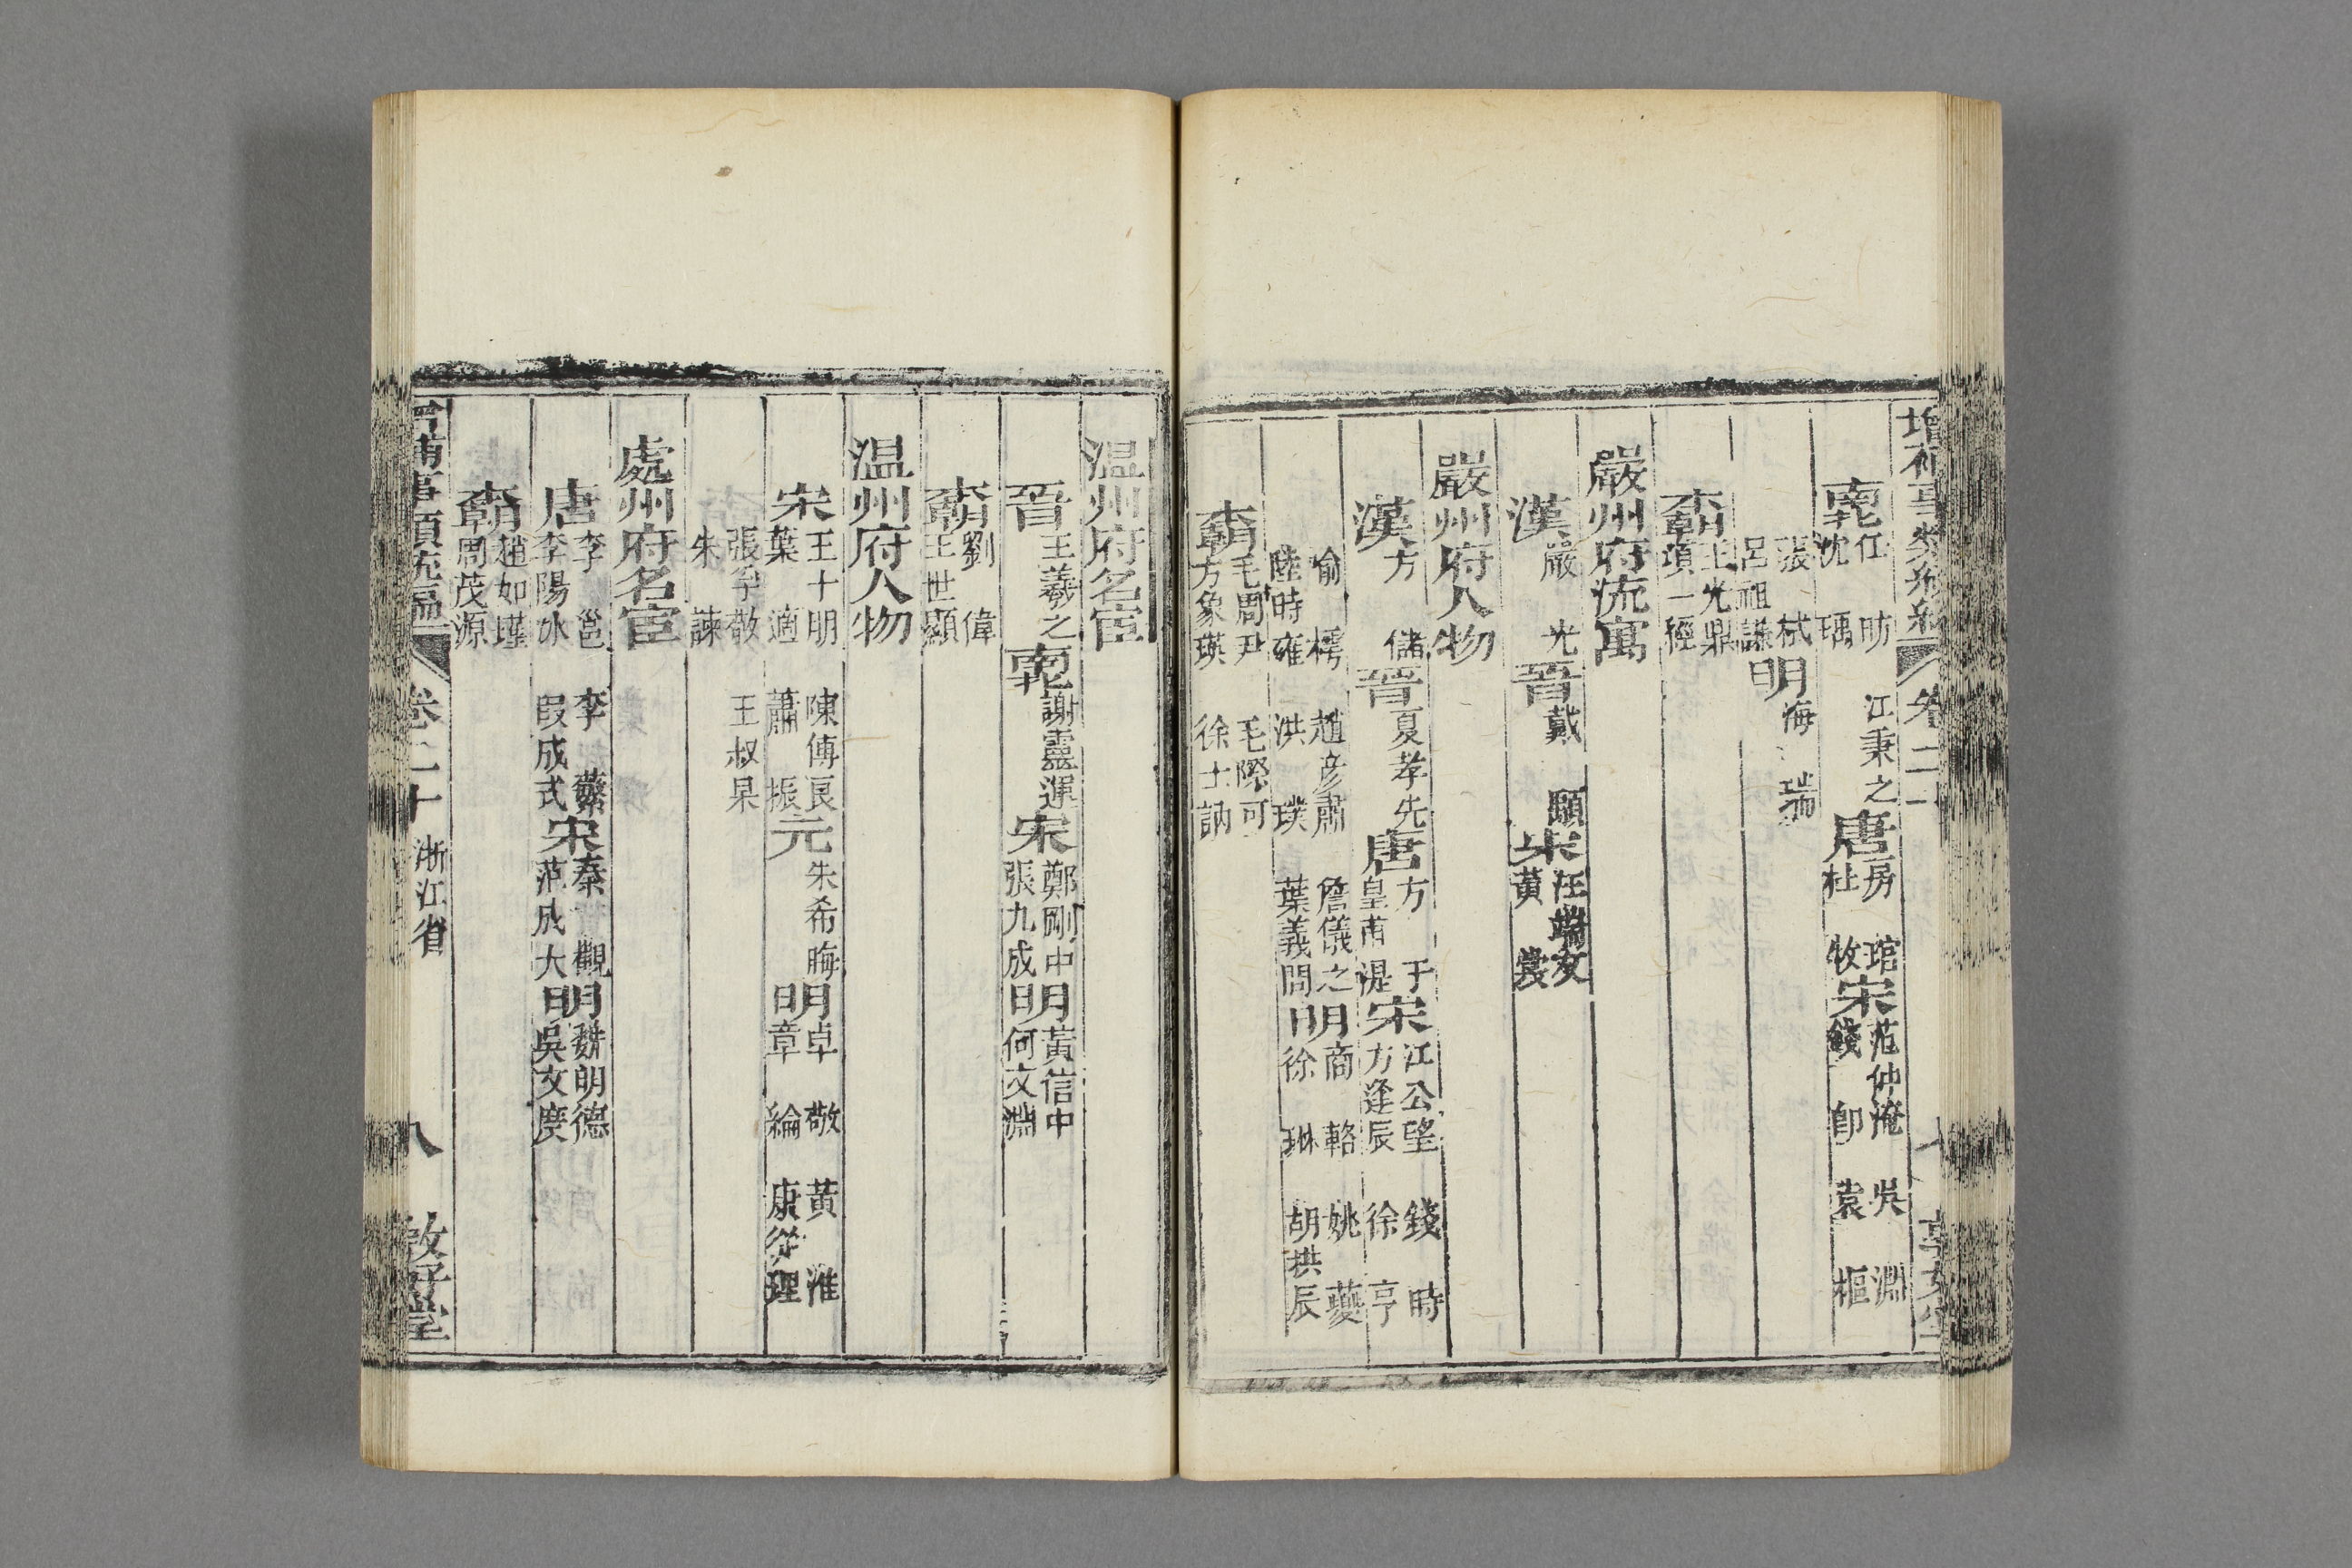 增補事類統編 卷二十 七 敦好堂
南朝 任昉 沈瑀 江秉之 唐 房琯 杜牧 宋 范仲淹 錢卽 吳淵 袁樞
張栻 呂祖謙 明 海瑞
本朝 王光鼎 項一經
嚴州府流寓
漢 嚴光 晉 戴顒 宋 汪端友 黃裳
嚴州府人物
漢 方儲 晉 夏孝先 唐 方干 皇甫湜 宋 江公望 方逢辰 錢時 徐亨
喻樗 陸時雍 趙彥肅 洪璞 詹儀之 葉義問 明 商輅 徐琳 姚夔 胡栱辰
本朝 毛周尹 方象瑛 毛際可 徐士訥
温州府名宦
晉 王羲之 南朝 謝靈運 宋 鄭剛中 張九成 明 黃信中 何文淵
本朝 劉偉 王世顯
温州府人物
宋 王十朋 葉適 陳傅良 蕭振 元 朱希晦 明 卓敬 章綸 黃淮 康從理
張孚敬 朱諫 王叔杲
處州府名宦
唐 李邕 李陽冰 李蘩 段成式 宋 秦觀 范成大 明 魏明德 吳文度
本朝 趙如瑾 周茂源
增補事類統編 卷二十 浙江省 八 敦好堂